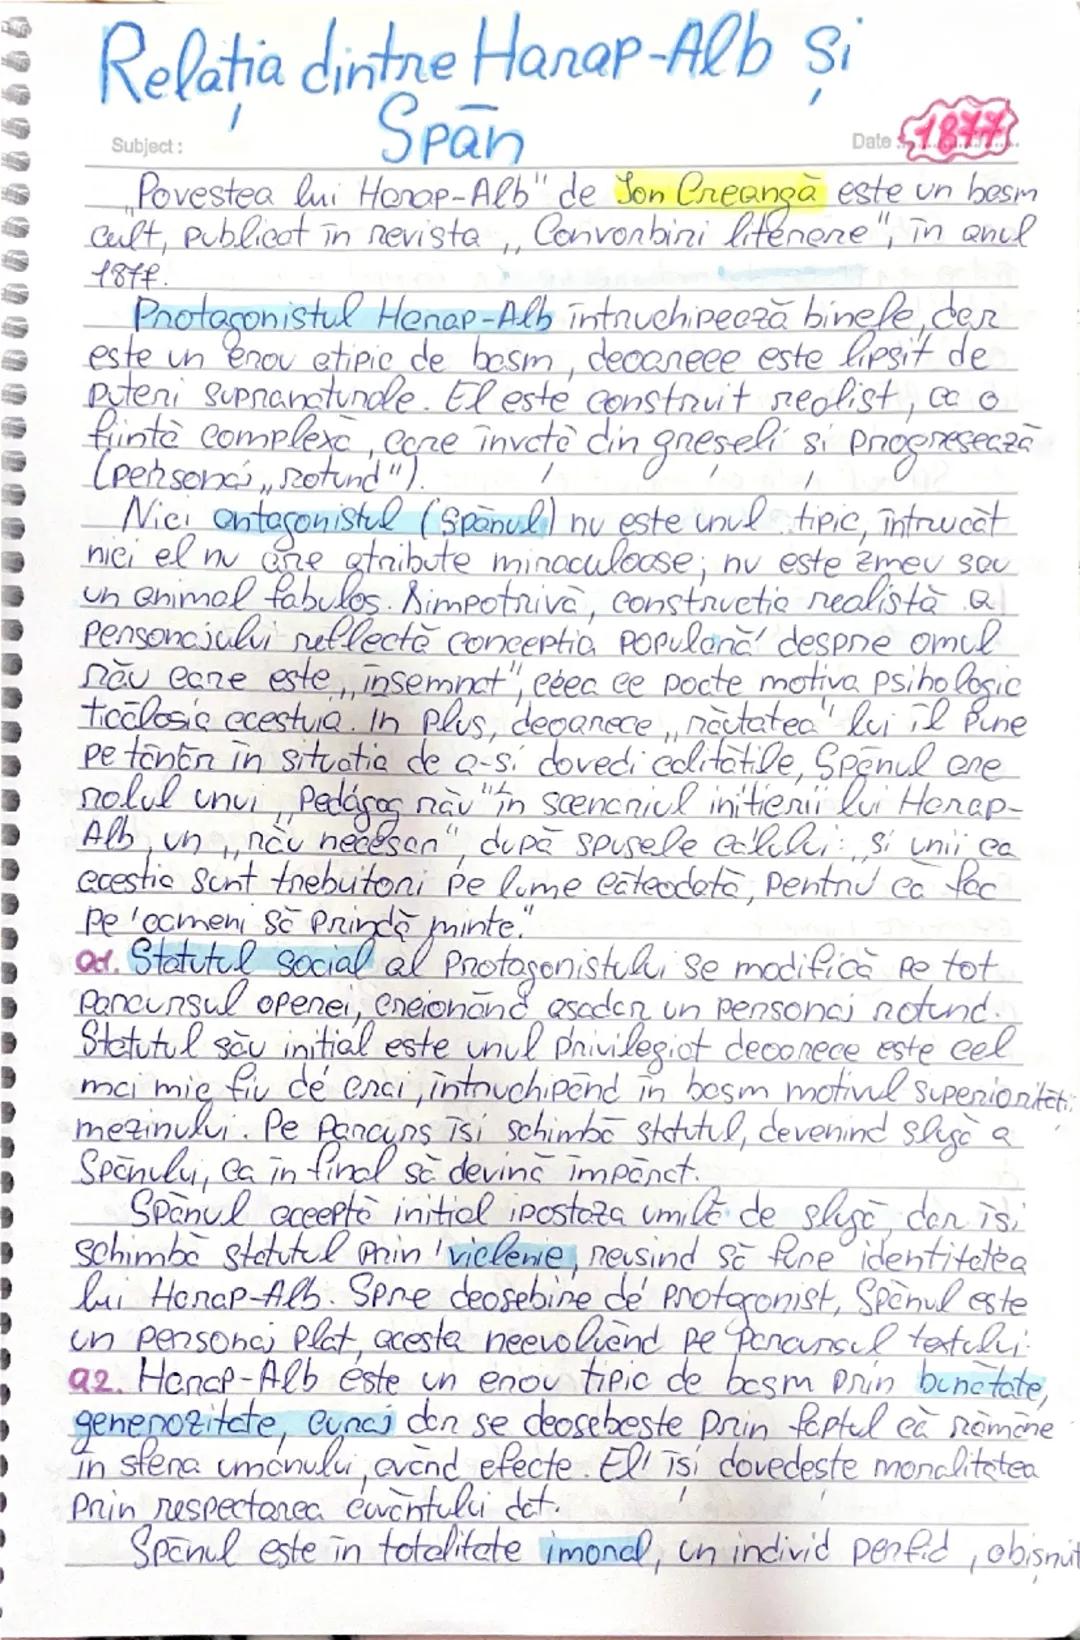 Relația dintre Harap-Alb și
Spân
Subject:
Date
1877
„Povestea lui Harap-Alb" de Ion Creangă este un basm
cult, publicat în revista „Convorbiri literare", în anul
1877.
Protagonistul Harap-Alb întruchipează binele, dar
este un erou atipic de basm, deoarece este lipsit de
puteri supranaturale. El este construit realist, ca o
ființă complexă, care învață din greșeli și progresează
(personaj „rotund").
Nici antagonistul (Spânul) nu este unul tipic, întrucât
nici el nu are atribute miraculoase; nu este zmeu sau
un animal fabulos. Dimpotrivă, construcția realistă a
personajului reflectă concepția populară despre omul
rău care este „însemnat", ceea ce poate motiva psihologic
ticăloșia acestuia. In plus, deoarece „răutatea" lui îl pune
pe tânăr în situația de a-și dovedi calitățile, Spânul are
rolul unui „Pedagog rău" în scenariul inițierii lui Harap-
Alb, un „rău necesar", după spusele calului: „Și unii ca
aceștia sunt trebuitori pe lume câteodată, pentru că fac
pe oameni să prindă minte."
a1. Statutul social al protagonistului se modifică pe tot
parcursul operei, creionând așadar un personaj rotund.
Statutul său inițial este unul privilegiat deoarece este cel
mai mic fiu de crai, întruchipând în basm motivul superiorității
mezinului. Pe parcurs își schimbă statutul, devenind slugă a
Spânului, ca în final să devină împărat.
Spânul acceptă inițial ipostaza umilă de slugă, dar își
schimbă statutul prin viclenie, reușind să fure identitatea
lui Harap-Alb. Spre deosebire de protagonist, Spânul este
un personaj plat, acesta neevoluând pe parcursul textului.
a2. Harap-Alb este un erou tipic de basm prin bunătate,
generozitate, curaj dar se deosebește prin faptul că rămâne
în sfera umanului, având efecte. El își dovedește moralitatea
prin respectarea cuvântului dat.
Spânul este în totalitate imoral, un individ perfid, obișnuit